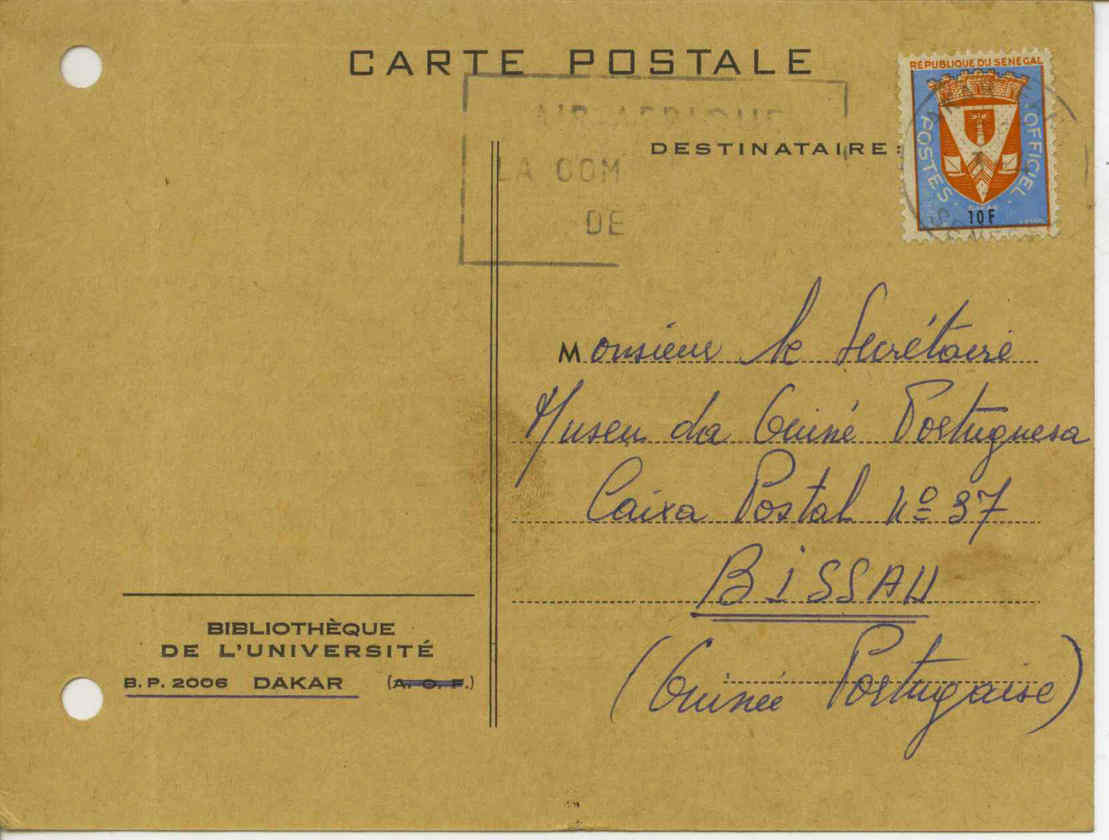 CARTE POSTALE
AIR AFRIQUE
LA COM
DE
DESTINATAIRE:
REPUBLIQUE DU SENEGAL
POSTES
OFFICIEL
10F
Monsieur le Secrétaire
Museu da Guiné Portuguesa
Caixa Postal nº 37
BISSAU
(Guinée Portugaise)
BIBLIOTHÈQUE
DE L'UNIVERSITÉ
B. P. 2006 DAKAR (A. O. F.)